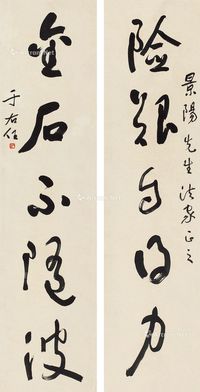 景陽先生法家正之
險艱自得力
金石不隨波
于右任